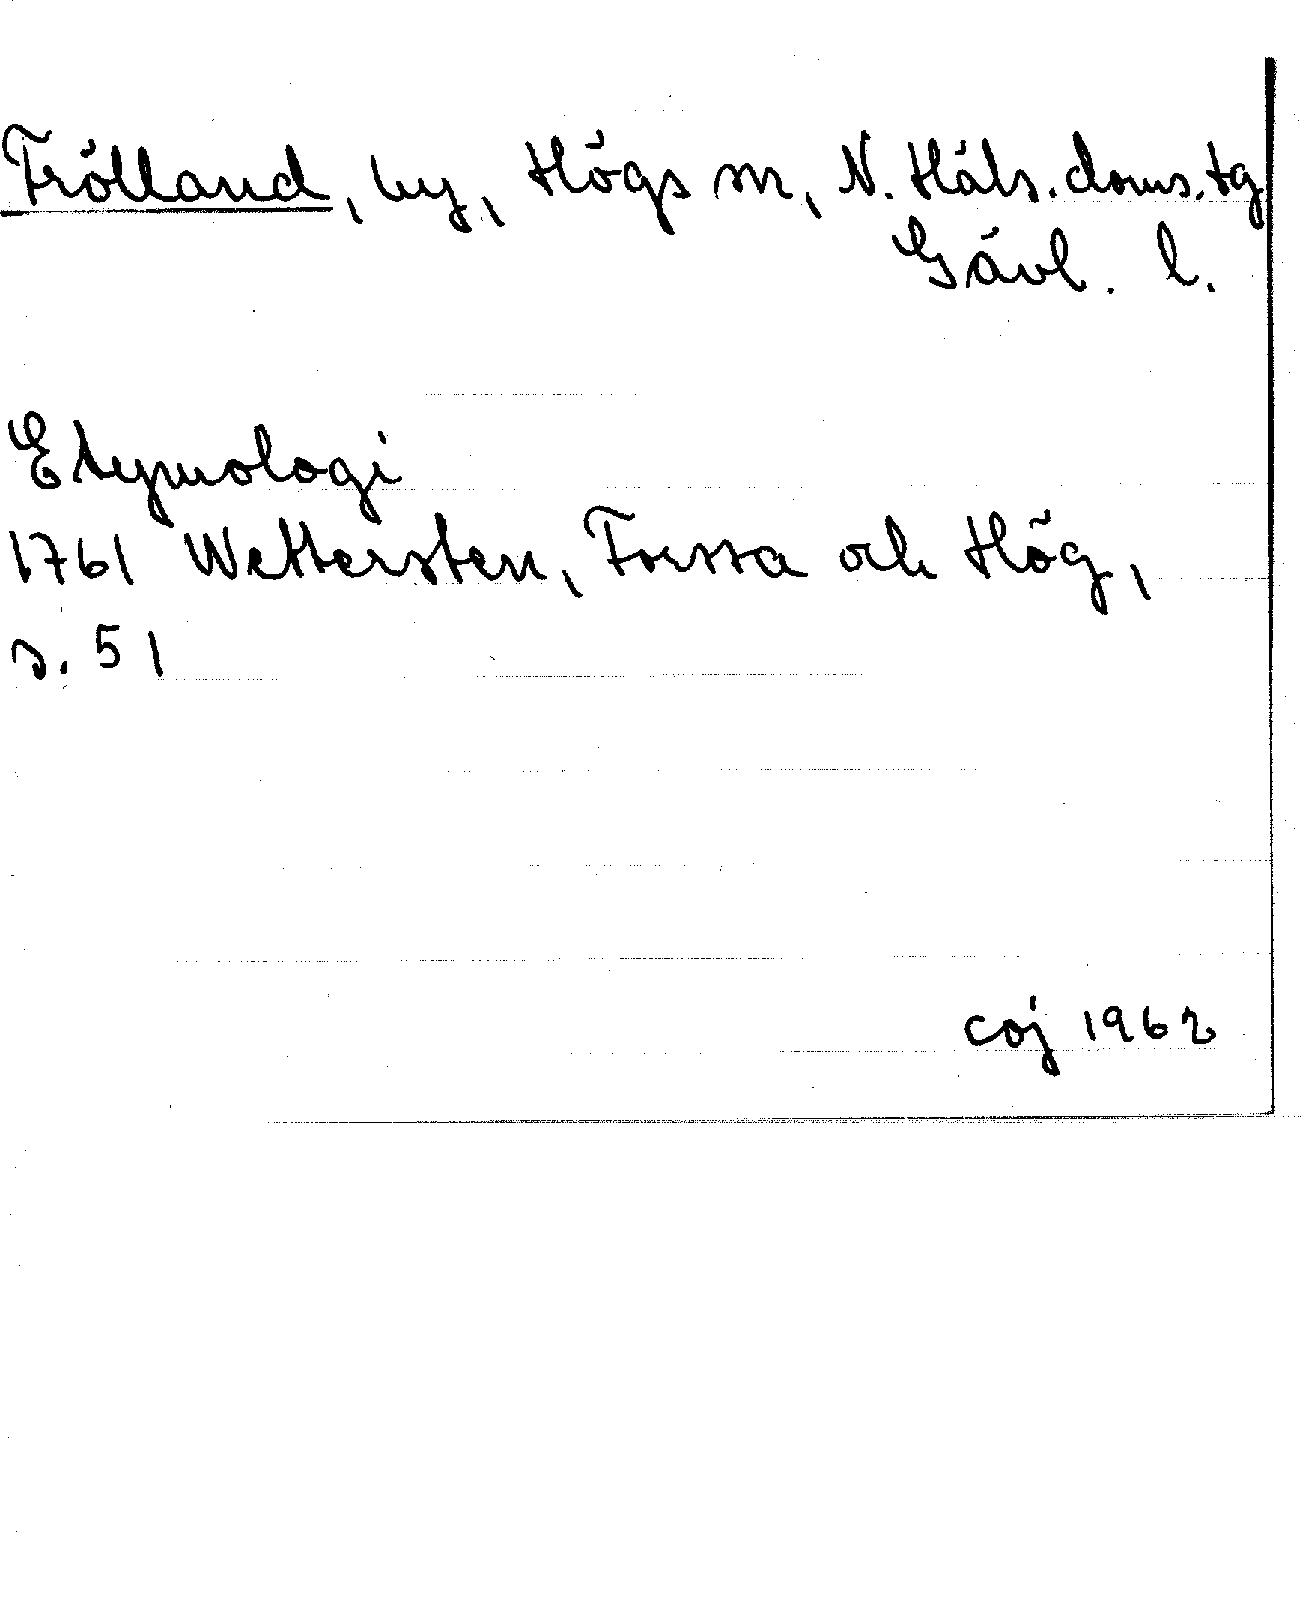 Frölland, by, Högs sn, N. Häls. doms. tg
Gävl. l.
Etymologi
1761 Wettersten, Forssa och Hög,
s. 51
coj 1962